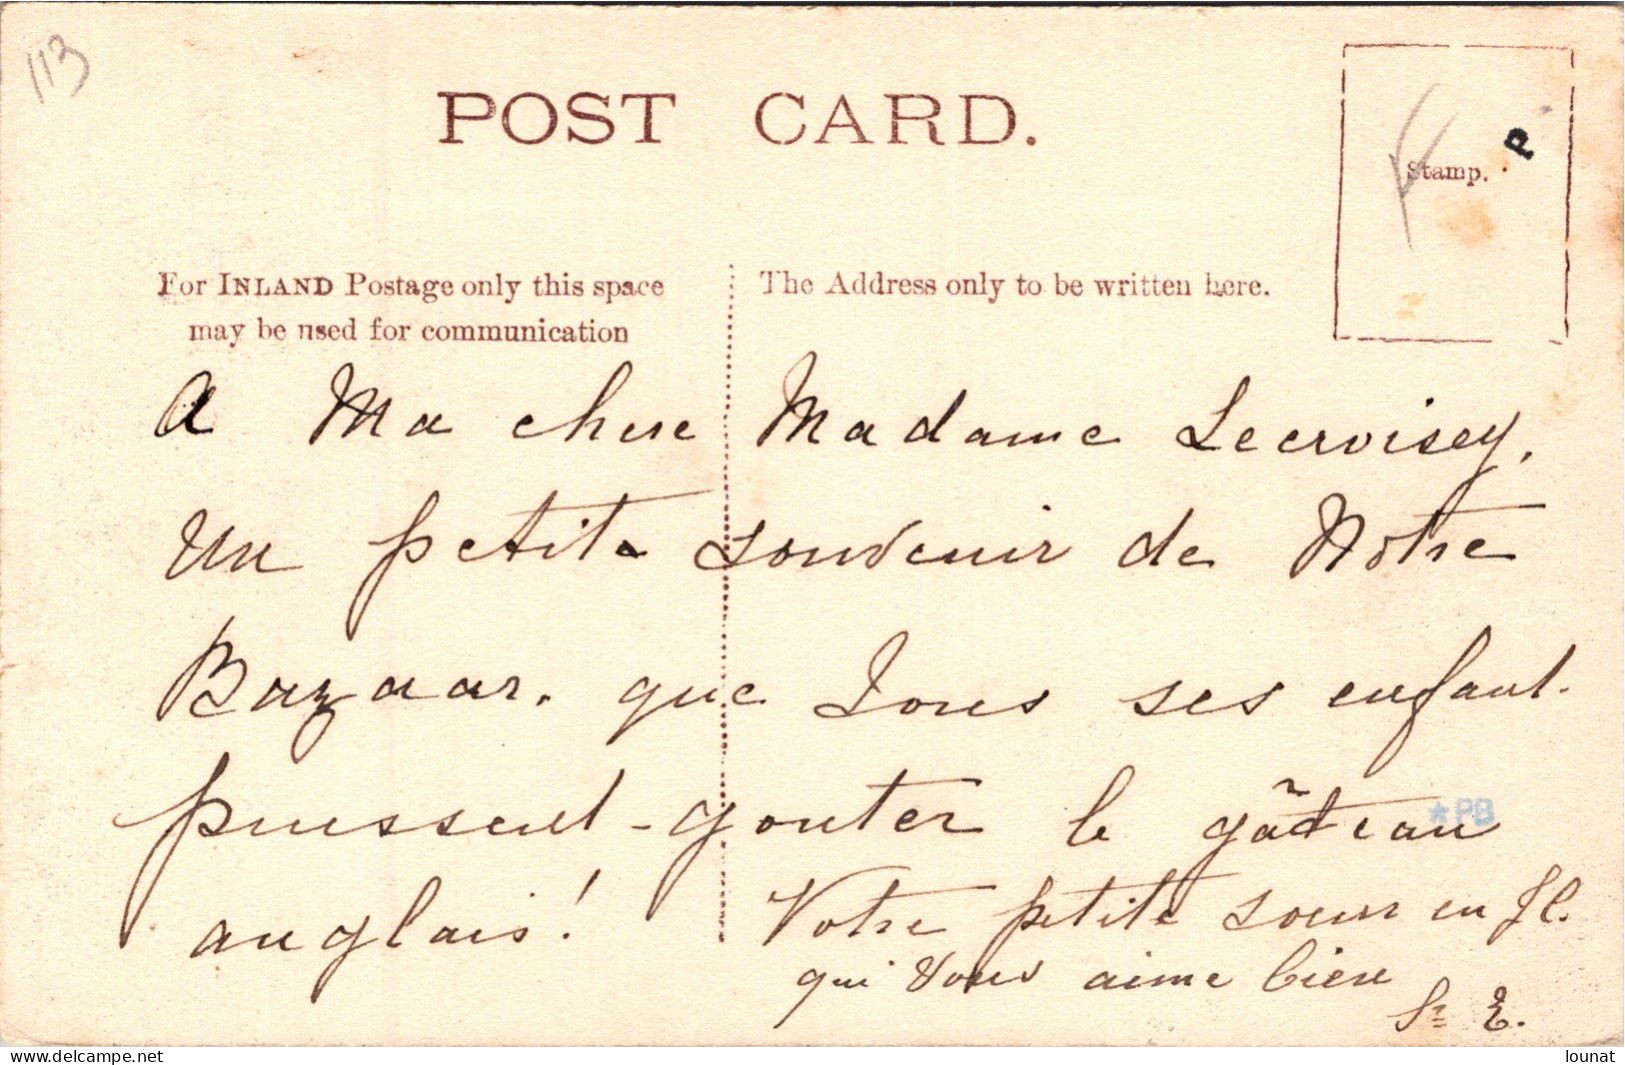 113
POST CARD.
Stamp.
P
For INLAND Postage only this space
may be used for communication
The Address only to be written here.
A Ma chere Madame Lecroisey,
Un petite souvenir de Notre
Bazaar. que Tous ses enfant.
puissent - gouter le gâteau
*PB
anglais!
Votre petite soeur en Jl.
qui Vous aime bien
Sr E.
www.delcampe.net
lounat